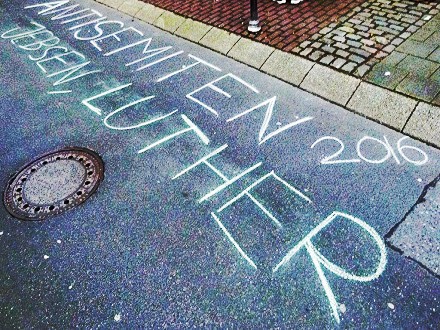 ANTISEMITEN
JEBSEN, LUTHER
2016